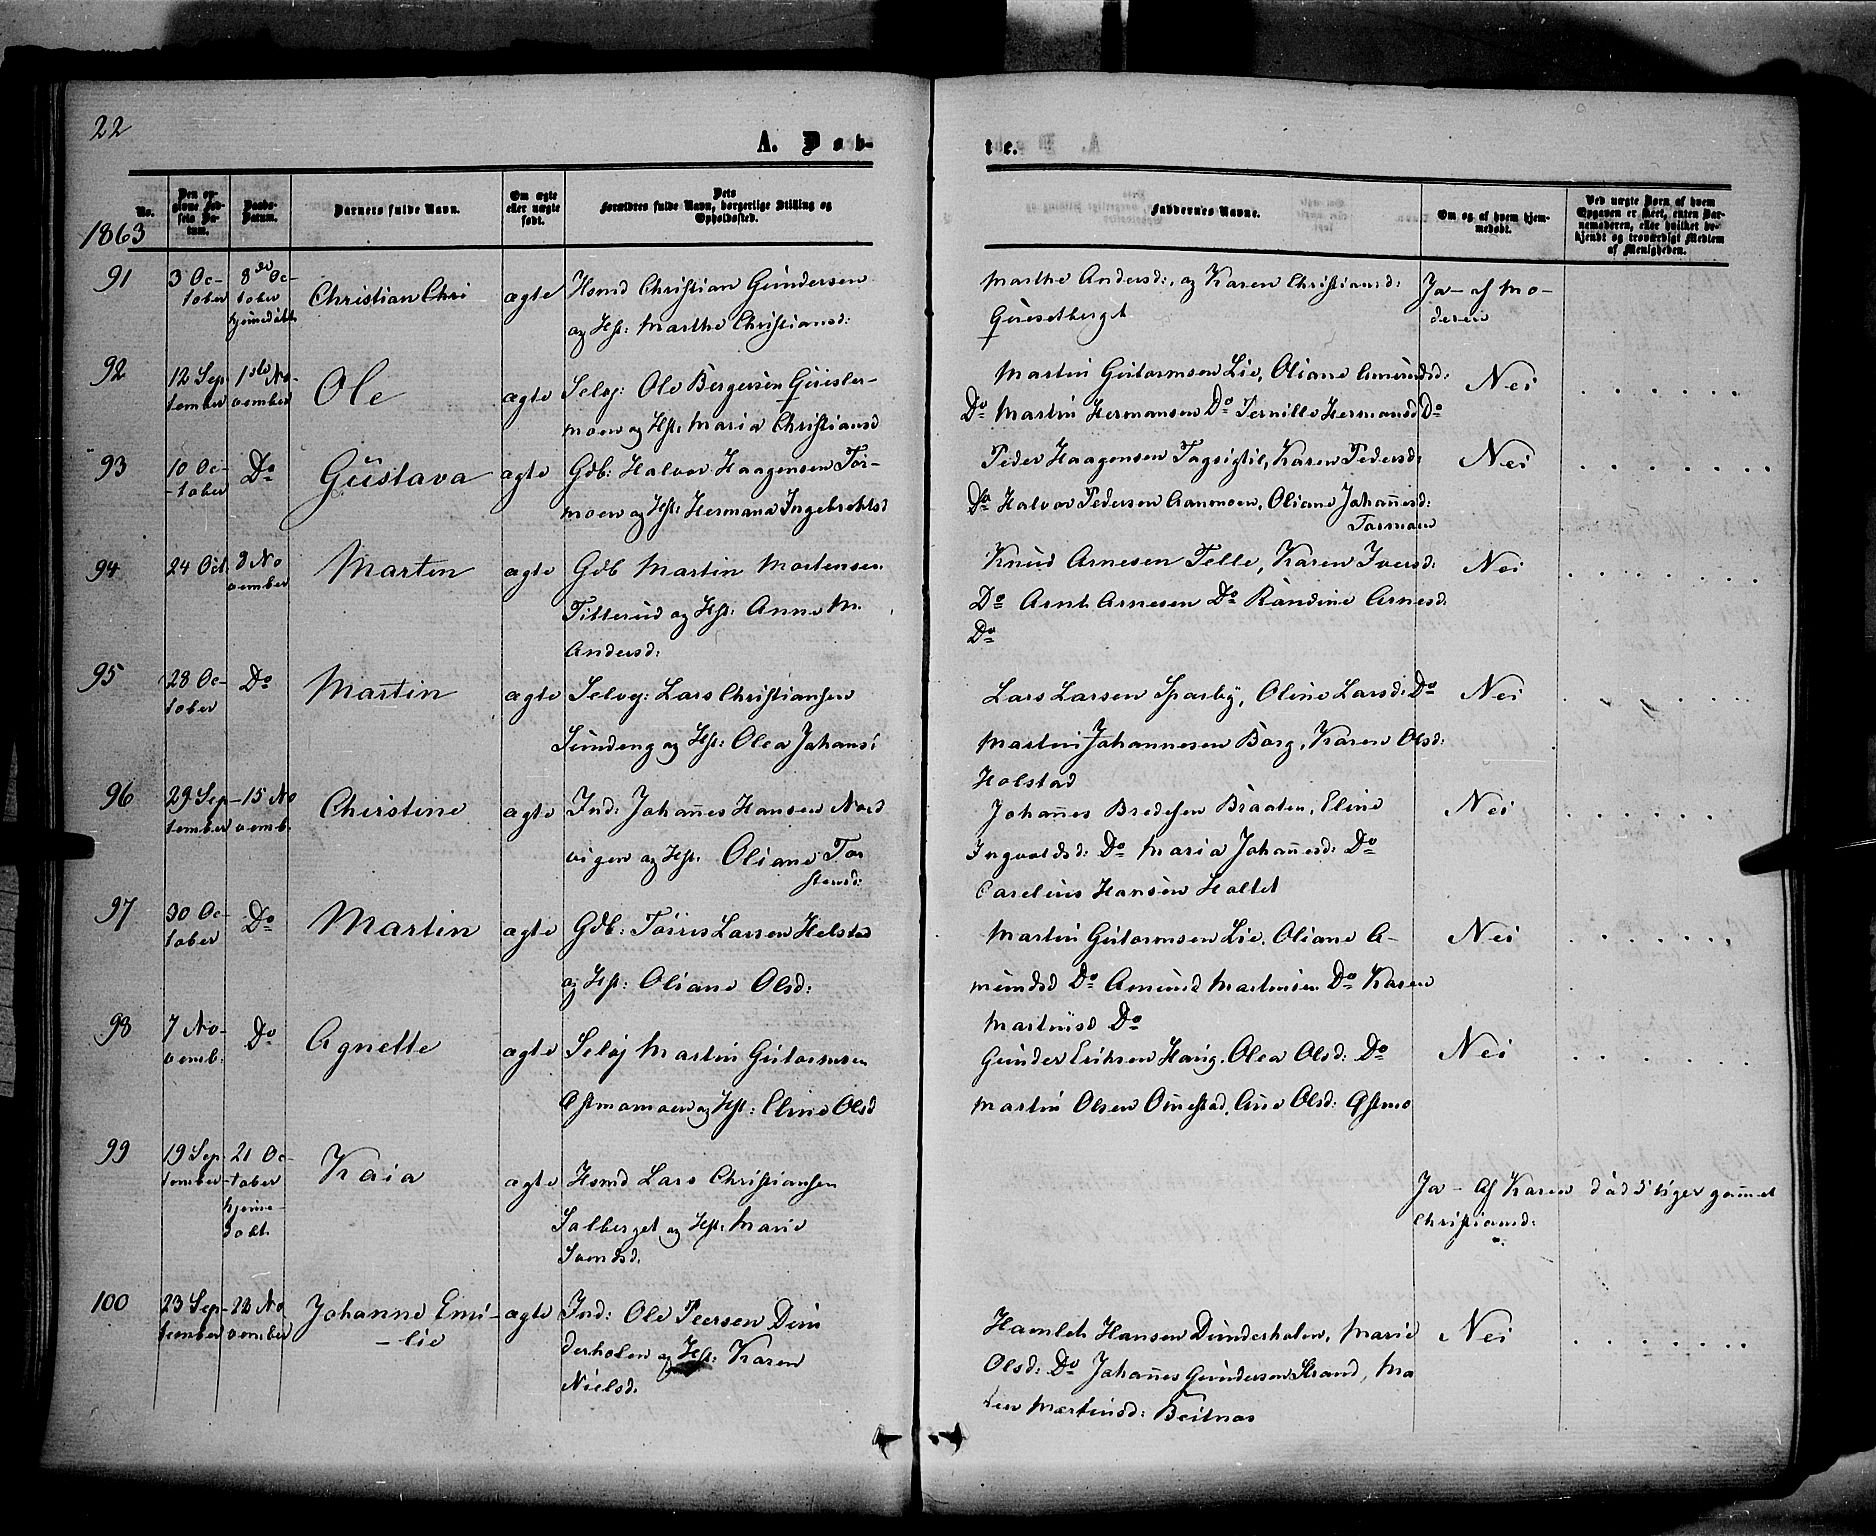 22
A. Døb-
te.
1863
No.
Den opgivne Fødsels Datum.
Daabs-Datum.
Barnets fulde Navn.
Om ægte eller uægte født.
Dets Forældres fulde Navn, borgerlige Stilling og Opholdssted.
Faddernes Navne.
Om og af hvem hjemmedøbt.
Ved uægte Børn af hvem Opgaven er skeet, enten Barnemoderen, eller hvilket bekjendt og troværdigt Medlem af Menigheden.
91
3 Oc-
tober
8de Oc-
tober
hjemedøbt
Christian Chri
ægte
Hsmd Christian Gundersen
og Hst: Marthe Christiansd:
Marthe Andersd:, og Karen Christiansd:
Ja - af Mo-
deren
92
12 Sep
tember
1ste No
vember
Ole
ægte
Selvej: Ole Børgersen
moen og Hst: Maria Christiansd
Martin Guttormsen Lie, Oliane Amundsd:
Do Martin Hermansen Do Pernille Hermansd Do
Nei
93
10 Oc-
tober
Do
Gustava
ægte
Gdb: Halvor Haagensen Tor-
moen og Hst: Hermana Ingebrehtsd
Peder Haagensen, Karen Pedersd:
Do Halvor Pedersen Aanmoen, Oliane Johannesd:
Tormoen
Nei
94
24 Oct.
3 No
vember
Marten
ægte
Gdb Martin Mortensen
Titterud og Hst: Anne M.
Andersd:
Knud Arnesen Telle, Karen Iversd:
Do Arnt Arnesen Do Randine Arnesd:
Do
Nei
95
28 Oc-
tober
Do
Martin
ægte
Selvej: Lars Christiansen
Sundeng og Hst: Olea Johansd
Lars Larsen Sparby, Oline Larsd: Do
Martin Johannesen Borg, Karen Olsd:
Holstad
Nei
96
29 Sep-
tember
15 No
vemb.
Christine
ægte
Ind: Johannes Hansen Nord
vigen og Hst. Oliane Tor
stensd:
Johannes Bredesen Braaten, Eline
Ingvaldsd: Do Maria Johannesd: Do
Carelius Hansen Holtet
Nei
97
30 Oc-
tober
Do
Martin
ægte
Gdb: Torris Larsen Helstad
og Hst: Oliane Olsd:
Martin Guttormsen Lie. Oliane A-
mundsd Do Amund Martinsen Do Karen
Martinsd Do
Nei
98
7 No-
vemb.
Do
Agnette
ægte
Selvej Martin Guttormsen
Østmomoen og Hst: Eline Olsd
Gunder Eriksen Haug, Olea Olsd: Do
Martin Olsen Ornestad, Ane Olsd: Østmo
Nei
99
19 Sep-
tember
21 Oc-
tober
hjemme-
døbt
Kaia
ægte
Hsmd Lars Christiansen
Solberget og Hst: Marie
Svendsd.
Ja - Af Karen
Christiansd:
død 5 Uger gammel
100
23 Sep-
tember
22 No
vember
Johanne Emi-
-lie
ægte
Ind: Ole Peersen Dun
derholen og Hst: Karen
Nielsd.
Hamleth Hansen Dunderholen, Marie
Olsd: Do Johannes Gundersen Strand, Ma
ren Martinsd:
Nei